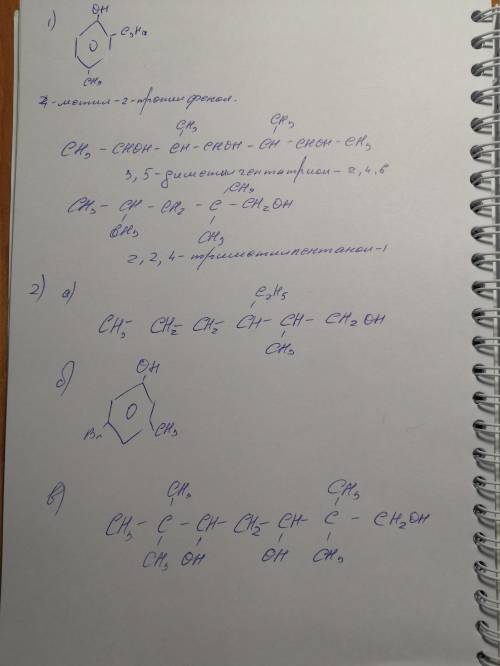 1)
OH
C3H7
O
CH3
4-метил-2-пропил фенол.
CH3 CH3
CH3 - CHOH - CH - CHOH - CH - CHOH - CH3
3,5-диметилгептатриол-2,4,6
CH3
CH3 - CH - CH2 - C - CH2OH
CH3 CH3
2,2,4-триметилпентанол-1
2) а)
C2H5
CH3 - CH2 - CH2 - CH - CH - CH2OH
CH3
б)
OH
O
Br CH3
в)
CH3 CH3
CH3 - C - CH - CH2 - CH - C - CH2OH
CH3 OH OH CH3